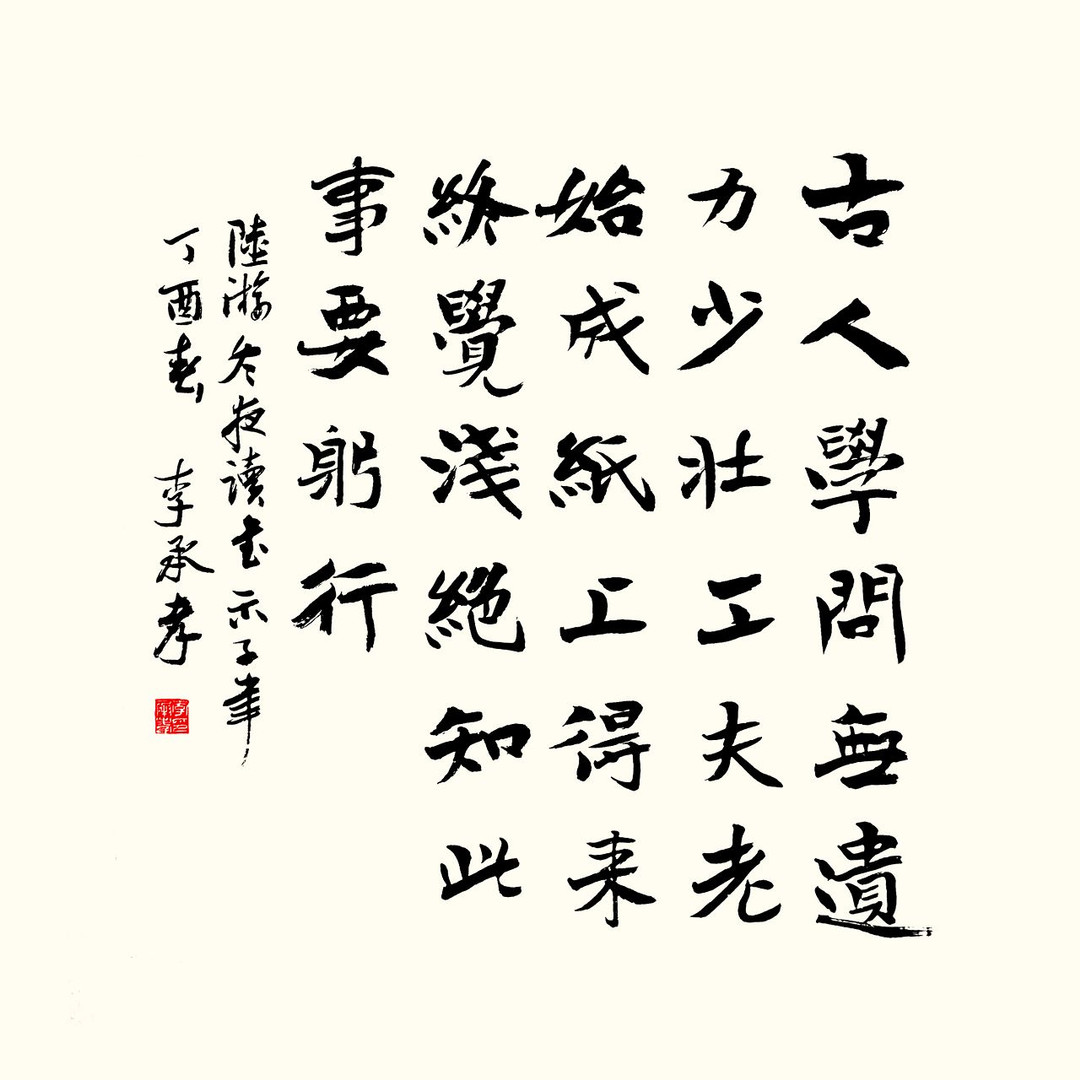 古人學問無遺
力少壮工夫老
始成紙上得来
終覺淺絕知此
事要躬行
陸游冬夜讀书示子聿
丁酉春 李承孝